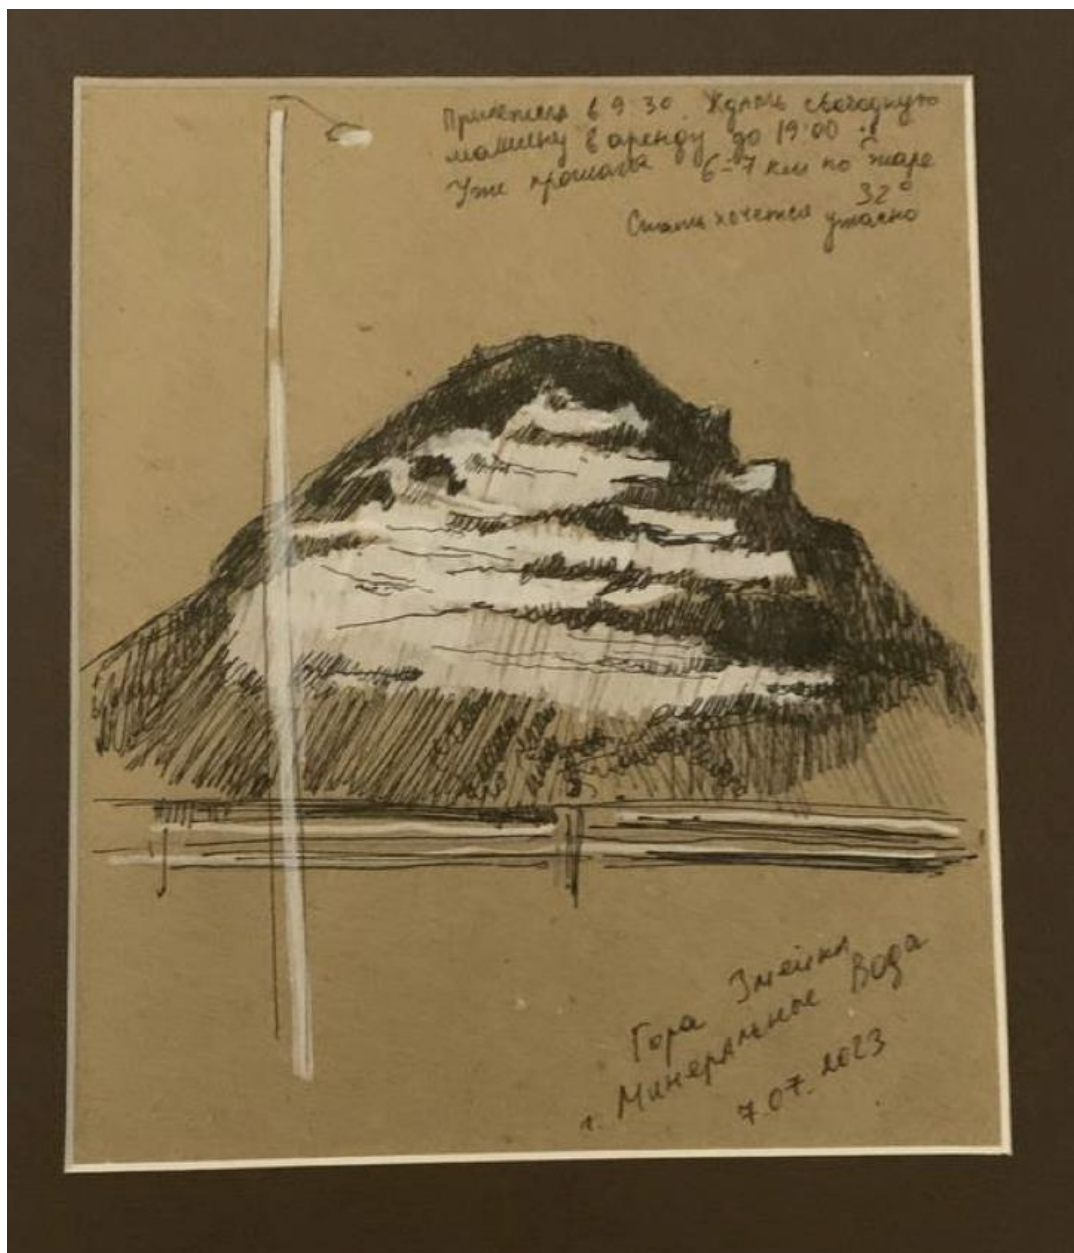 Прилетела в 9:30. Ждать свободную
машину в аренду до 19:00 :(
Уже прошла 6-7 км по жаре
32°
Спать хочется ужасно
Гора Змейка
г. Минеральные Вода
7.07.2023